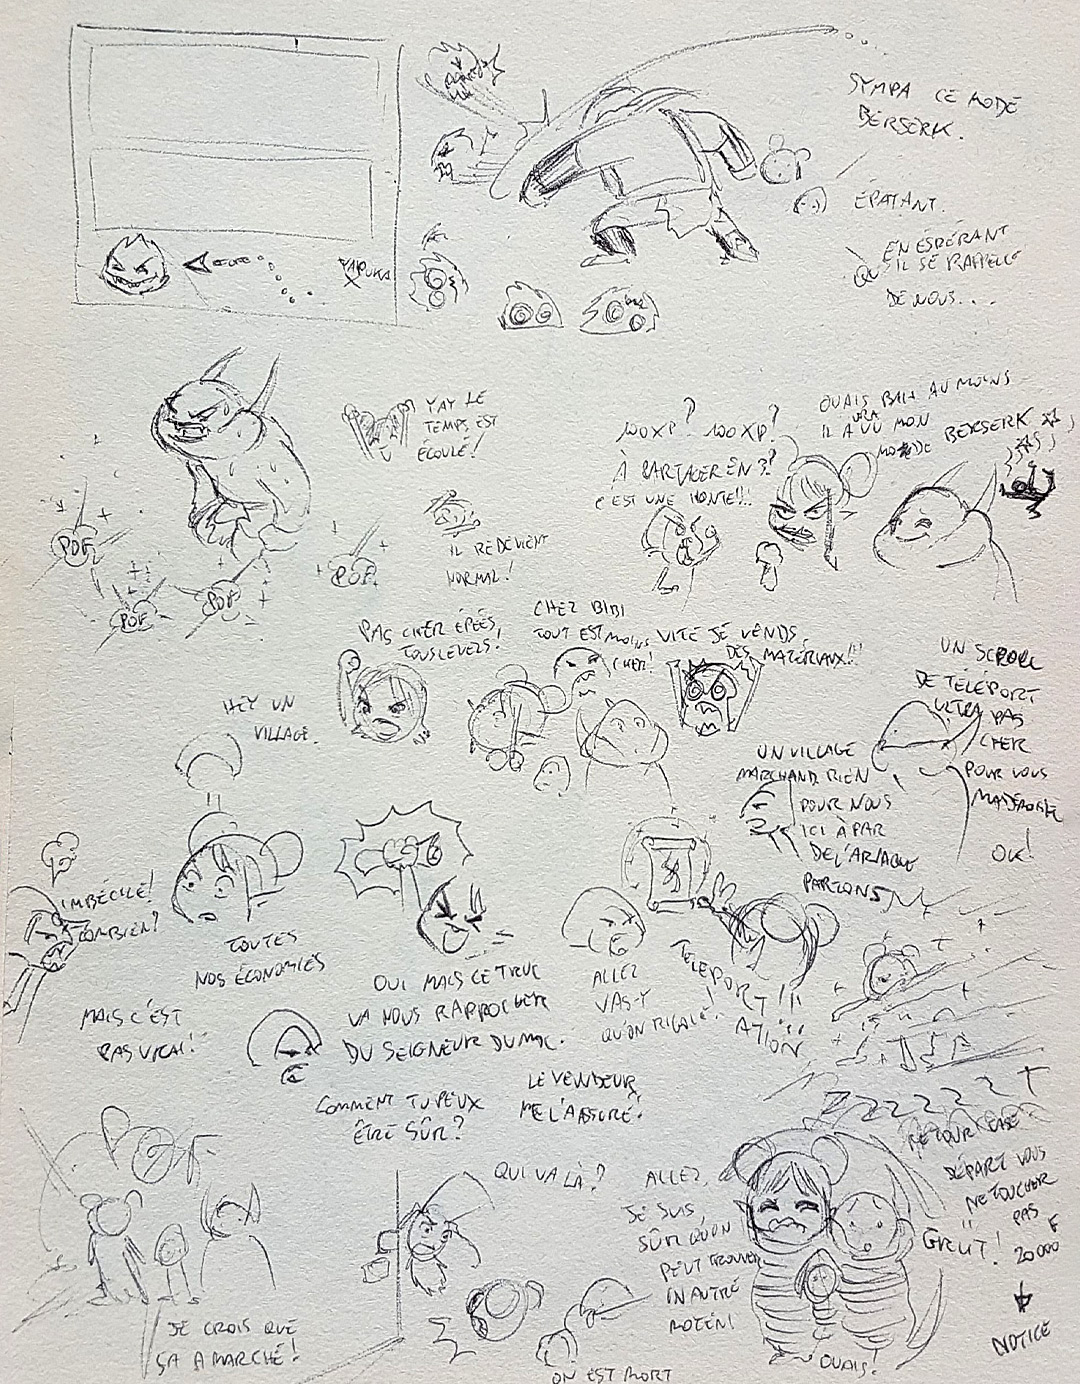 SYMPA CE MODE
BERSERK.
ÉPATANT.
EN ESPÉRANT
QU'IL SE RAPPELLE
DE NOUS....
YAY LE
TEMPS EST
ÉCOULÉ!
IL REDEVIENT
NORMAL!
POF
POF
POF
POF
100 XP? 100 XP!
À PARTAGER EN 3?
C'EST UNE HONTE!!!
OUAIS BAH AU MOINS
IL A VU MON
MODE BERSERK
HEY UN
VILLAGE.
PAS CHER ÉPÉES
TOUS LEVELS!
CHEZ BIBI
TOUT EST MOINS
CHER!
VITE JE VENDS
DES MATÉRIAUX!!!
UN VILLAGE
MARCHAND. RIEN
POUR NOUS
ICI À PAR
DE L'ARNAQUE
PARTONS
UN SCROLL
DE TÉLÉPORT
ULTRA PAS
CHER
POUR VOUS
MADEMOISELLE
OK!
IMBÉCILE!
COMBIEN?
TOUTES
NOS ÉCONOMIES
MAIS C'EST
PAS VRAI!
OUI MAIS CE TRUC
VA NOUS RAPPROCHER
DU SEIGNEUR DU MAL.
COMMENT TU PEUX
ÊTRE SÛR?
LE VENDEUR
ME L'A ASSURÉ!
ALLEZ
VAS-Y
QU'ON RIGOLE!
TELEPORT!!
ATION
POF
JE CROIS QUE
ÇA A MARCHÉ!
QUI VA LÀ?
ON EST MORT
ALLEZ,
JE SUIS
SÛR QU'ON
PEUT TROUVER
UN AUTRE
OUAIS!
RETOUR CASE
DÉPART VOUS
NE TOUCHER
PAS
20000 F
NOTICE